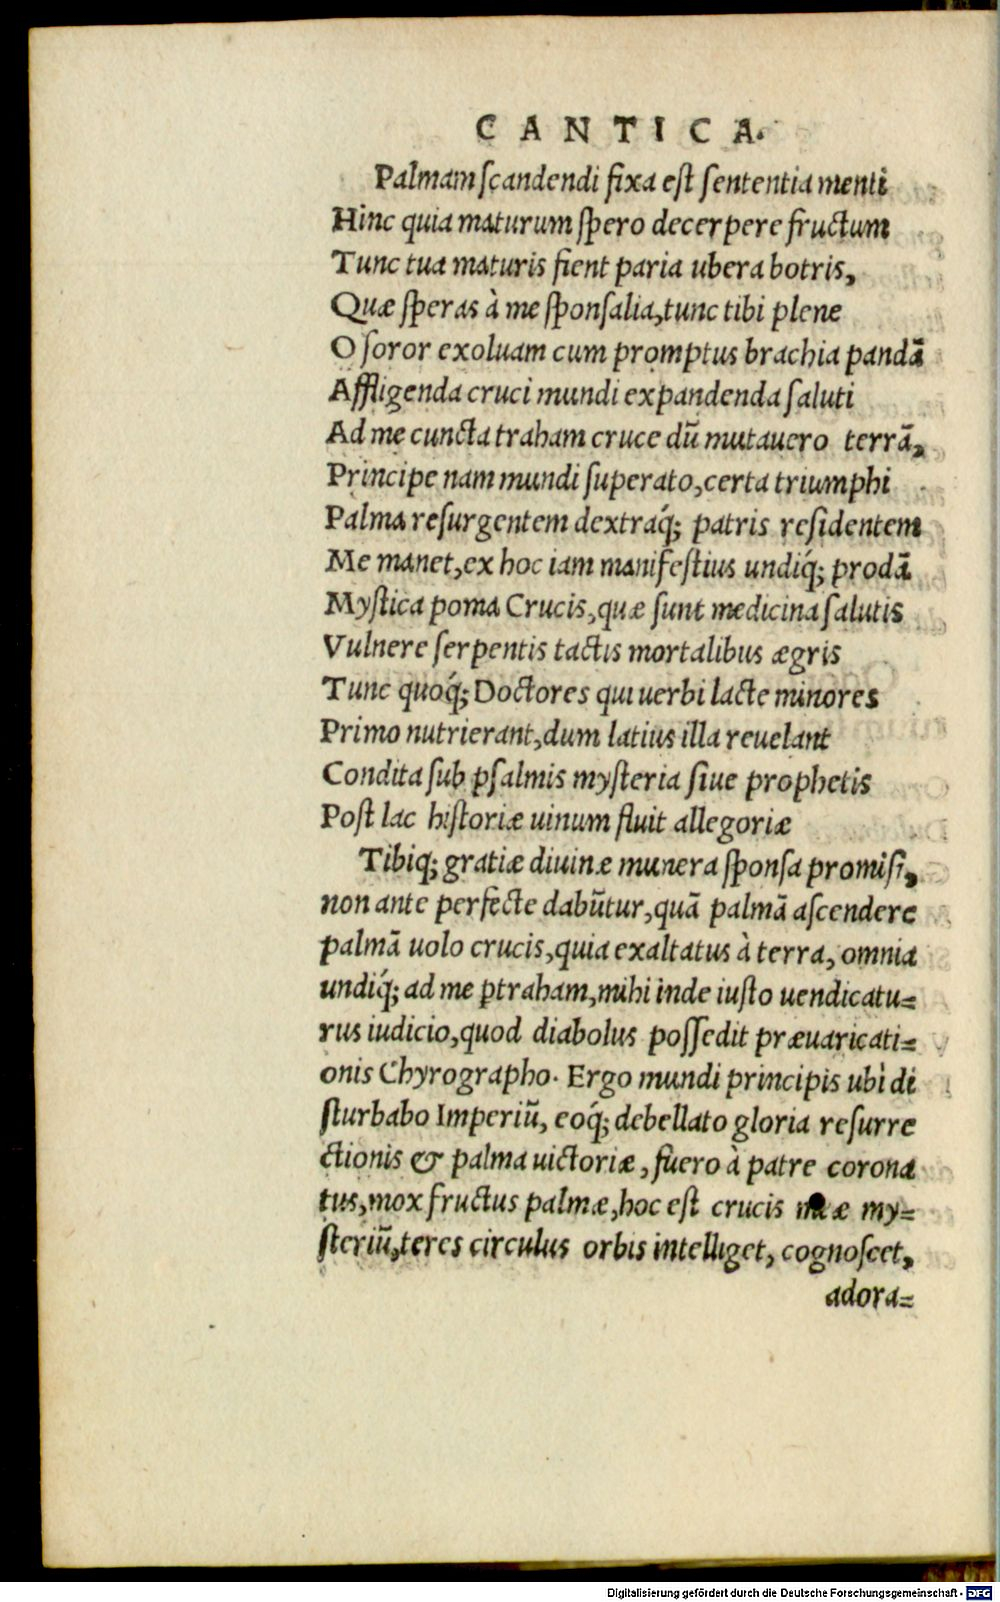 CANTICA.
Palmam ſcandendi fixa eſt ſententia menti
Hinc quia maturum ſpero decerpere fructum
Tunc tua maturis fient paria ubera botris,
Quæ ſperas à me ſponſalia,tunc tibi plene
O ſoror exoluam cum promptus brachia pandā
Affligenda cruci mundi expandenda ſaluti
Ad me cuncta traham cruce dū mutauero terrā,
Principe nam mundi ſuperato,certa triumphi
Palma reſurgentem dextraq́; patris reſidentem
Me manet,ex hoc iam manifeſtius undiq́; prodā
Myſtica poma Crucis,quæ ſunt medicina ſalutis
Vulnere ſerpentis tactis mortalibus ægris
Tunc quoq́; Doctores qui uerbi lacte minores
Primo nutrierant,dum latius illa reuelant
Condita ſub pſalmis myſteria ſiue prophetis
Poſt lac hiſtoriæ uinum fluit allegoriæ
Tibiq; gratiæ diuinæ munera ſponſa promiſi,
non ante perfecte dabūtur,quā palmā aſcendere
palmā uolo crucis,quia exaltatus à terra, omnia
undiq́; ad me ꝑtraham,mihi inde iuſto uendicatu=
rus iudicio,quod diabolus poſſedit præuaricati=
onis Chyrographo. Ergo mundi principis ubi di
ſturbabo Imperiū, eoq́; debellato gloria reſurre
ctionis & palma uictoriæ, fuero à patre corona
tus,mox fructus palmæ,hoc eſt crucis meæ my=
ſteriū,teres circulus orbis intelliget, cognoſcet,
adora=
Digitalisierung gefördert durch die Deutsche Forschungsgemeinschaft - DFG